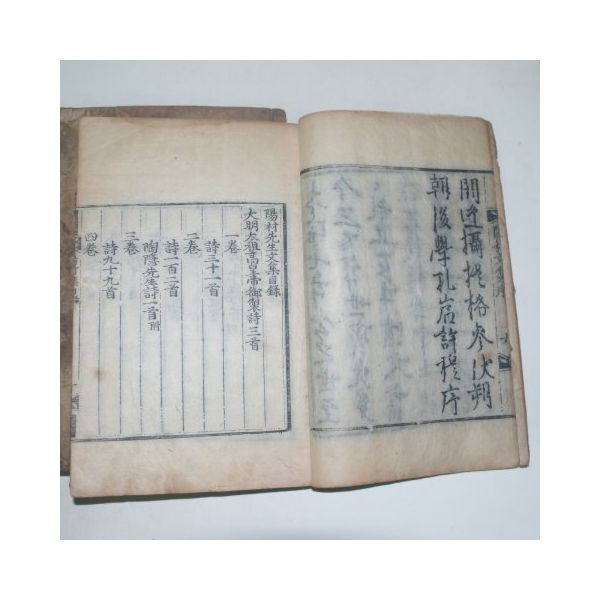 閼逢攝提格伏朔
朝後學孔巖許穆序
陽村先生文集目錄
大明太祖高皇帝御製詩三首
一卷
詩三十一首
二卷
詩一百二首
陶隱先生詩一首附
三卷
詩九十九首
四卷